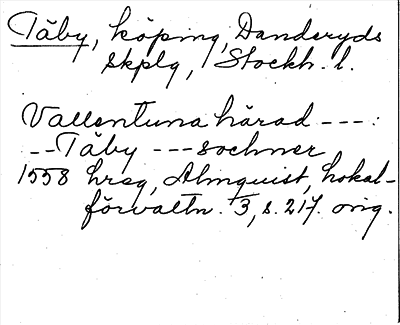 Täby, köping, Danderyds
skplg, Stockh. l.
Vallentuna härad ---:
--Täby --- sochner
1558 hrsg, Almquist, Lokal-
förvaltn. 3, s. 217. orig.